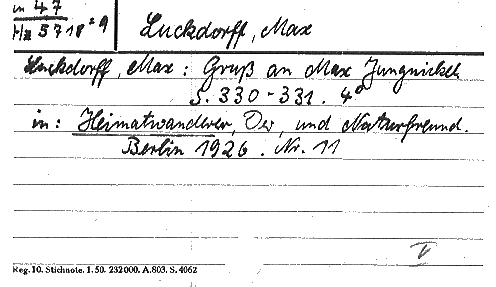 in 47
Hz 5718-9
Luckdorff, Max
Luckdorff, Max : Gruß an Max Jungnickel
S. 330-331. 4°
in: Heimatwanderer, Der, und Naturfreund.
Berlin 1926. Nr. 11
Reg. 10. Stichnote. 1. 50. 232000. A.803. S. 4062